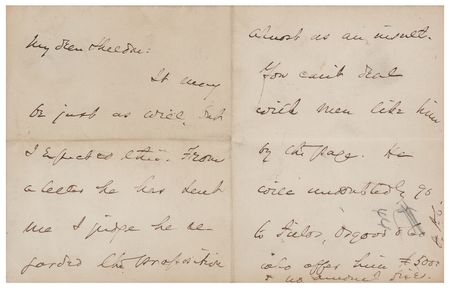 My dear Sheldon:
It may
be just as well, but
I expected this. From
a letter he has sent
me I judge he re-
garded the proposition
almost as an insult.
You can't deal
with men like him
by the page. He
will undoubtedly go
to Fields, Osgood & Co
who offer him $5000
& no amount given.